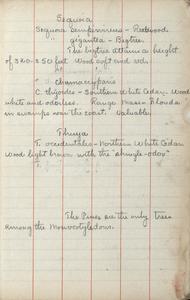 Sequoia
Sequoia sempervirens - Redwood
gigantea - Bigtree.
The bigtree attains a height
of 320-350 feet. Wood soft and red.
Chamaecyparis
C. thyoides - Southern White Cedar. Wood
white and odorless. Range Mass - Florida
in swamps near the coast. Valuable.
Thuya
T. occidentalis - Northern White Cedar
Wood light brown with the "shingle-odor"
T.
The Pines are the only trees
among the Monocotyledons.